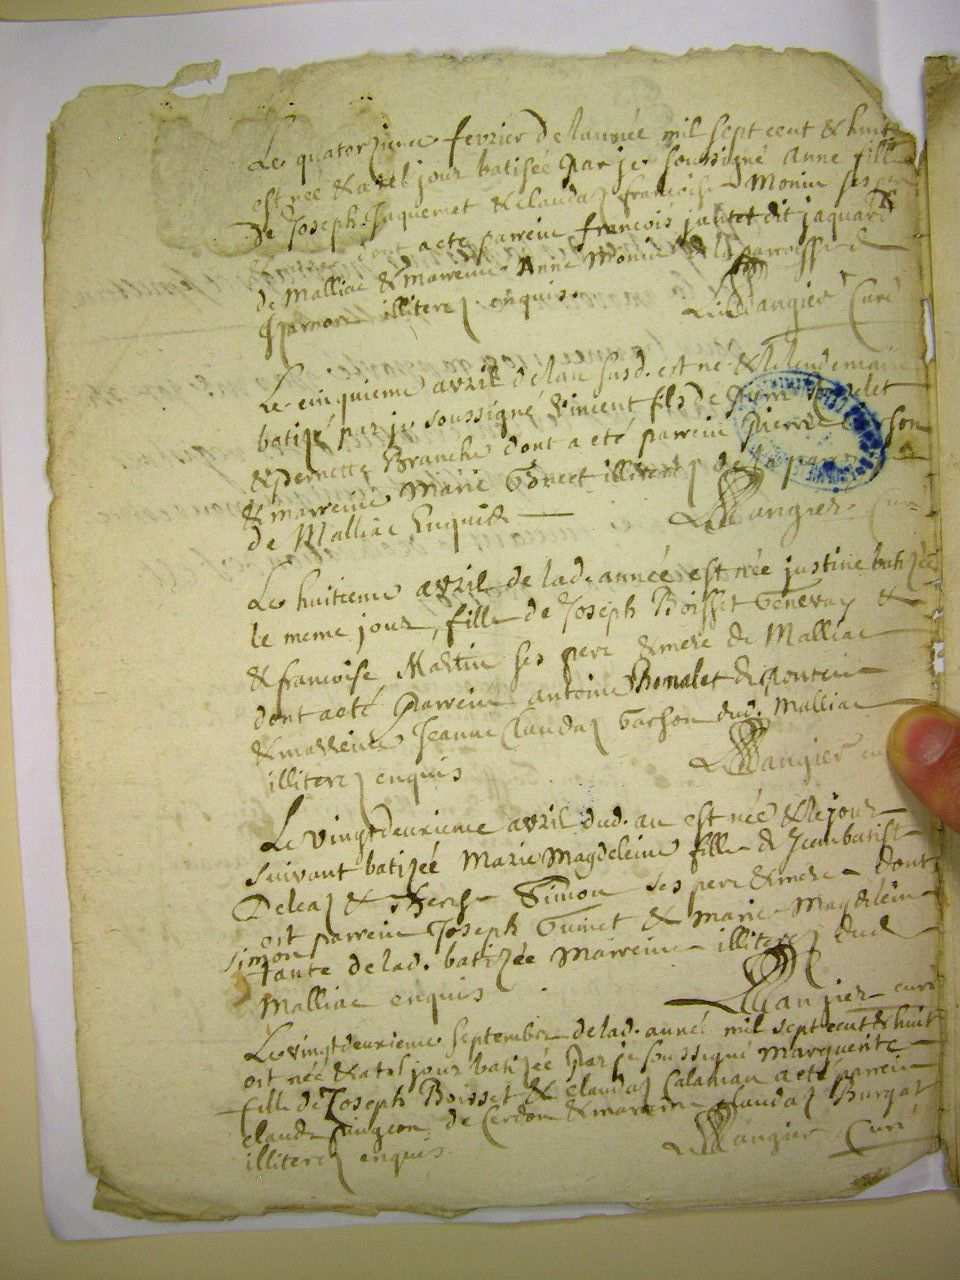 Le quatorzieme fevrier de lannée mil sept cent & huit
est née & a led. jour batisée par je soussigné anne fille
de Joseph Jaquemet & Claudaz françoise Monin ses pere
dont a eté parrein françois jantet dit jaquard
de Malliac & marreine Anne Monin de la parroisse de
illiterez enquis. Mangier Curé
Le cinquieme avril de lan susd. est né & le lendemain
batizé par je soussigné vincent fils de Pierre
& pernette Branche dont a eté parrein Pierre son
& marreine Marie illiterez de la par
de Malliac Enquis Mangier Curé
Le huitieme avril de lad. année est née justine batizée
le meme jour, fille de Joseph Boisset Genevay &
& francoise Martin ses pere & mere de Malliac
dont a eté Parrein antoine Bonalet de
& marreine Jeanne Claudaz Gachon dud. Malliac
illiterez enquis Mangier cu
Le vingtdeuxieme avril dud. an est née & le jour
suivant batizée Marie Magdeleine fille de Jean batiste
Deleaz & Therese Simon ses pere & mere dont
est parrein Joseph Guinet & Marie Magdelein
simon
tante de lad. batizée Marreine illiterez dud
Malliac enquis Mangier curé
Le vingtdeuxieme septembre de lad. année mil sept cent & huit
est née & a led. jour batizée par je soussigné Marguerite
fille de Joseph Boisset & Claudaz Calaman a eté parrein
claude de Cerdon & marreine claudaz Burgat
illiterez enquis Mangier Curé